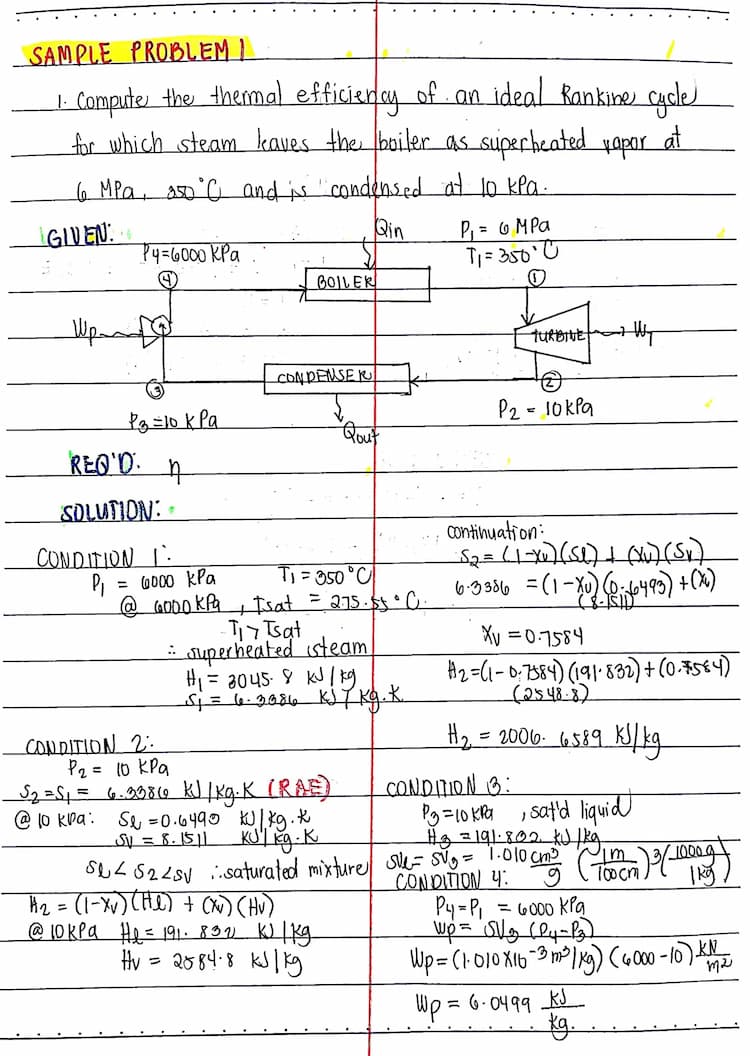 SAMPLE PROBLEM 1
1. Compute the thermal efficiency of an ideal Rankine cycle
for which steam leaves the boiler as superheated vapor at
6 MPa, 350°C and is condensed at 10 kPa.
GIVEN:
Qin
P1 = 6 MPa
T1 = 350°C
P4=6000 KPa
4
BOILER
1
Wp
TURBINE
WT
CONDENSER
3
2
P3=10 KPa
Qout
P2 = 10kPa
REQ'D. η
SOLUTION:
CONDITION 1:
P1 = 6000 kPa T1 = 350°C
@ 6000 KPa, Tsat = 275.55°C.
T1 > Tsat
∴ superheated steam
H1 = 3045.8 KJ/kg
S1 = 6.3386 KJ/kg.K
CONDITION 2:
P2 = 10 KPa
S2=S1= 6.3386 KJ/kg.K (RAE)
@ 10 kPa: Sl =0.6493 KJ/kg.K
SV = 8.1511 KJ/kg.K
Sl < S2 < SV ∴ saturated mixture
H2 = (1-XV)(Hl) + (XV)(HV)
@ 10KPa Hl = 191.832 KJ/kg
HV = 2584.8 KJ/kg
continuation:
S2 = (1-XV)(Sl) + (XV)(SV)
6.3386 = (1-XV)(0.6493) + (XV)
(8.1511)
XV = 0.7584
H2=(1-0.7584)(191.832)+(0.7584)
(2548.8)
H2 = 2006.6589 KJ/kg
CONDITION 3:
P3=10 KPa, sat'd liquid
H3 = 191.832 KJ/kg
SVl = SV3 = 1.010 cm³/g (1m/100cm)³(1000g/1kg)
CONDITION 4:
P4=P1 = 6000 KPa
Wp= SV3 (P4-P3)
Wp=(1.010X10⁻³ m³/kg)(6000-10) KN/m2
Wp = 6.0499 KJ/kg.